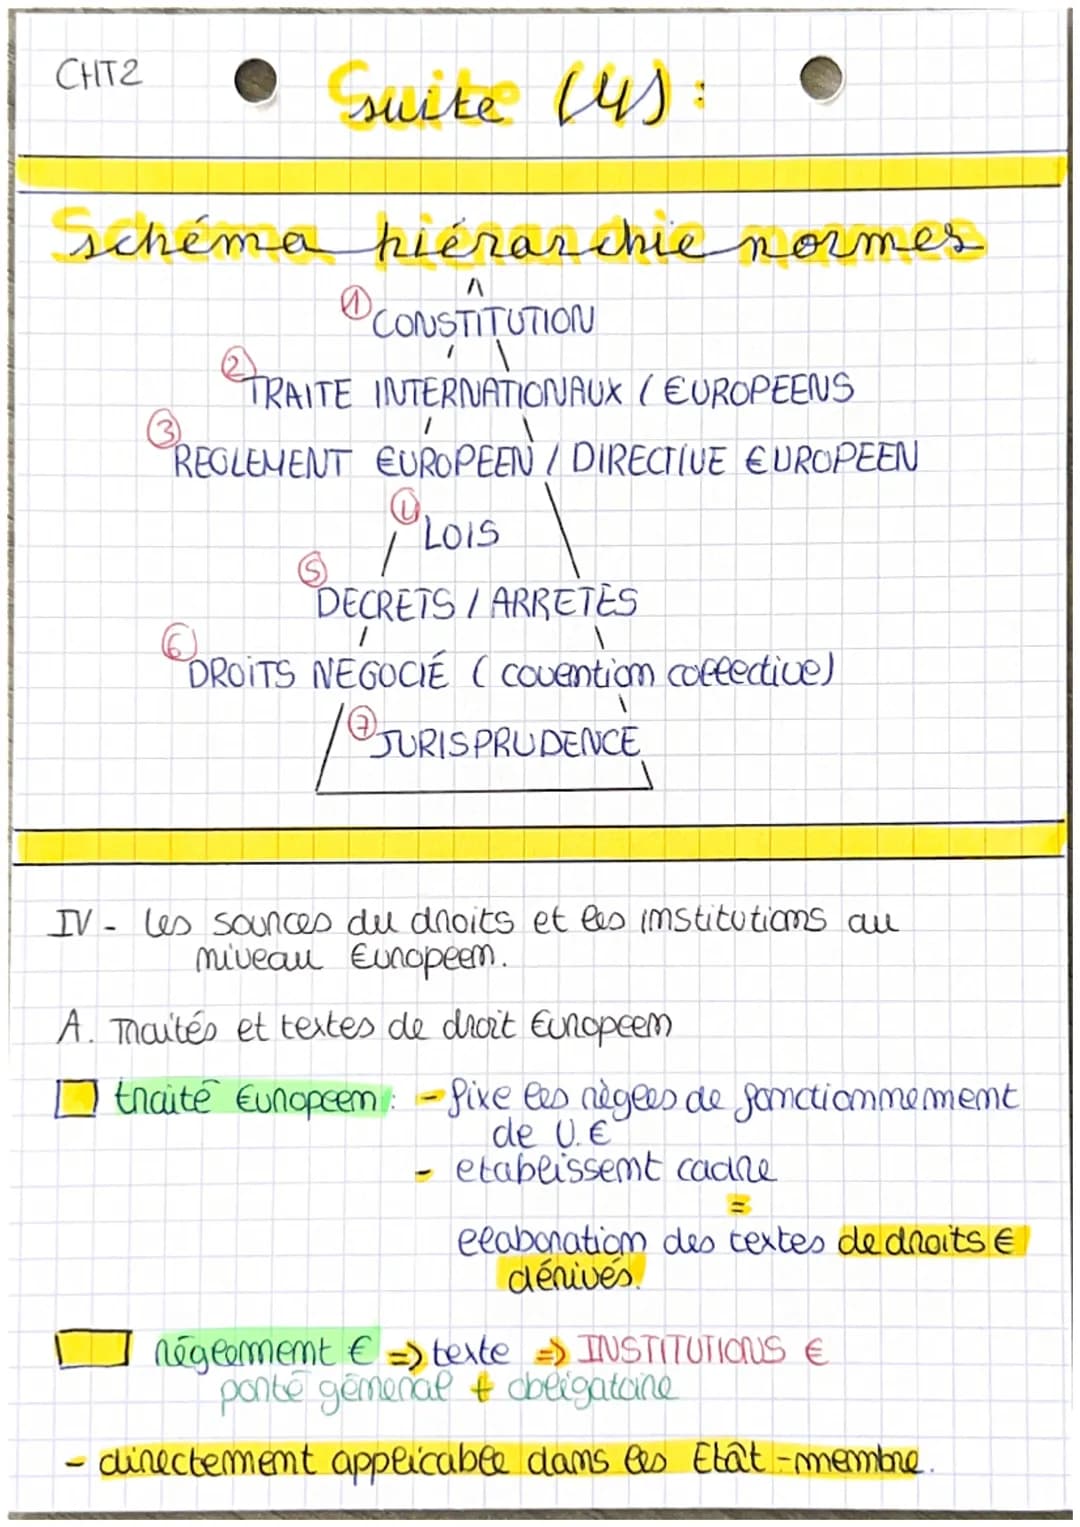 CHT2
Suite (4) :
Schéma hiérarchie normes
① CONSTITUTION
② TRAITE INTERNATIONAUX / €UROPEENS
③ REGLEMENT €UROPEEN / DIRECTIVE €UROPEEN
④ LOIS
⑤ DECRETS / ARRETES
⑥ DROITS NEGOCIÉ ( covention collective)
⑦ JURISPRUDENCE
IV - les sources du droits et les institutions au
niveau €uropeen.
A. Traités et textes de droit €uropeen
traité €uropeen : - fixe les règles de fonctionnement
de U.€
- etablissemt cadre
=
elaboration des textes de droits €
dérivés.
réglement € => texte => INSTITUTIONS €
porté général + obligatoire
- directement applicable dans les Etât-membre.